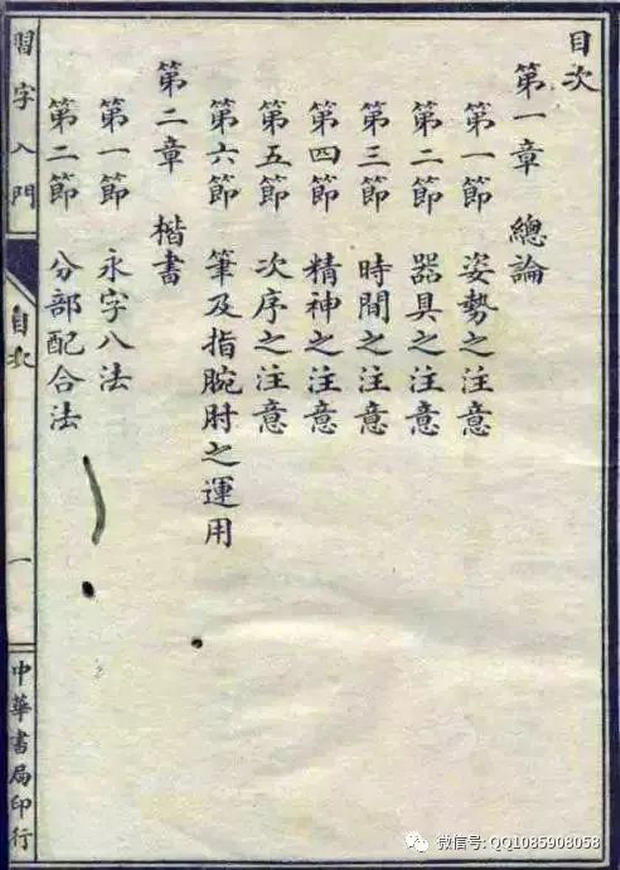 目次
第一章　總論
第一節　姿勢之注意
第二節　器具之注意
第三節　時間之注意
第四節　精神之注意
第五節　次序之注意
第六節　筆及指腕肘之運用
第二章　楷書
第一節　永字八法
第二節　分部配合法
習字入門
目次
一
中華書局印行
微信号: QQ1085908058